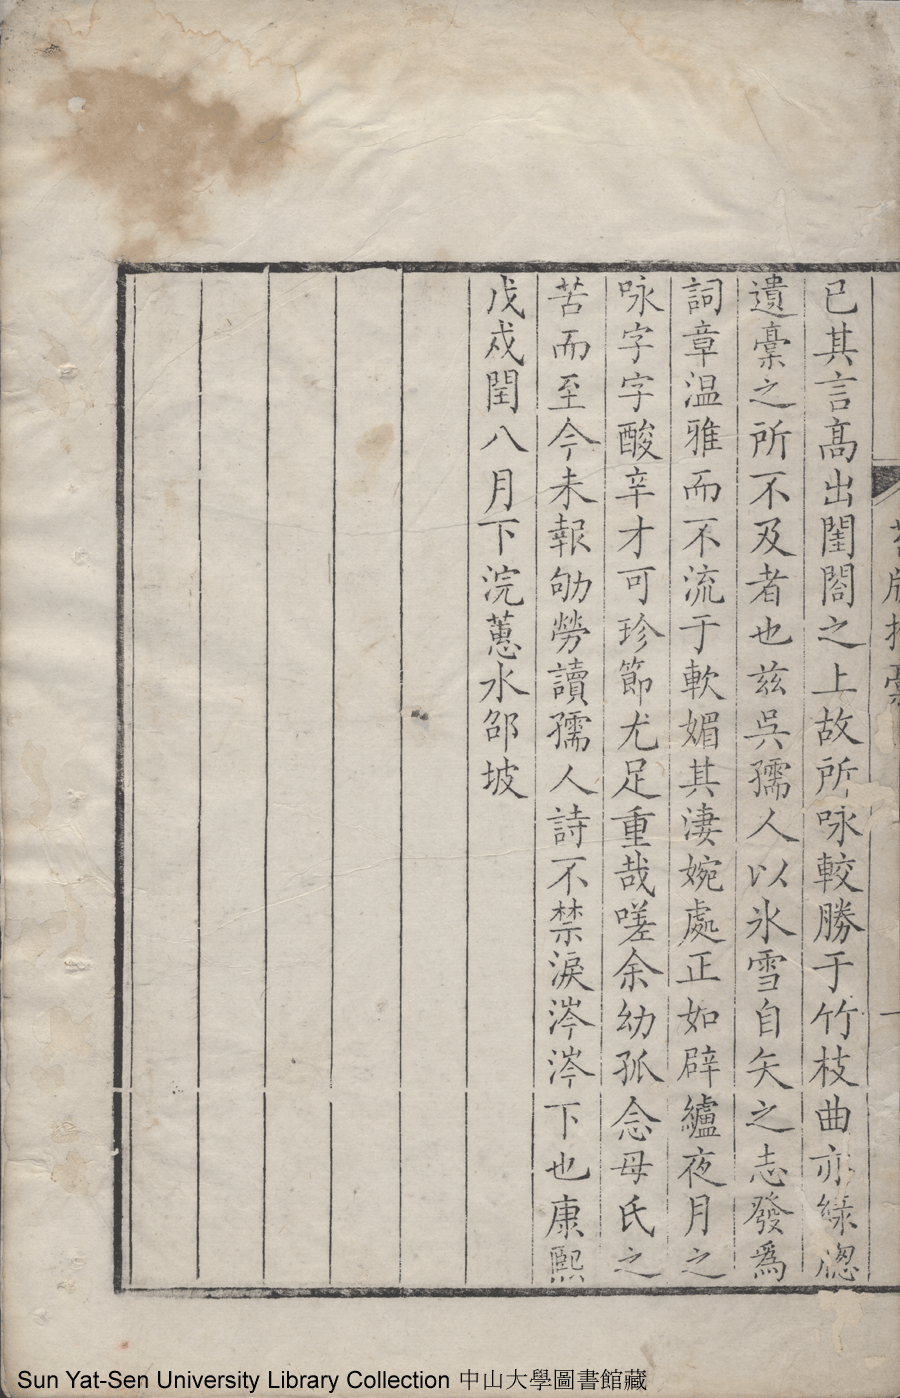 已其言高出閨閤之上故所咏較勝于竹枝曲亦綠牕
遺稾之所不及者也兹吳孺人以氷雪自矢之志發爲
詞章温雅而不流于軟媚其淒婉處正如辟纑夜月之
咏字字酸辛才可珍節尤足重哉嗟余幼孤念母氏之
苦而至今未報劬勞讀孺人詩不禁淚涔涔下也康熙
戊戌閏八月下浣蕙水邵坡
Sun Yat-Sen University Library Collection 中山大學圖書館藏